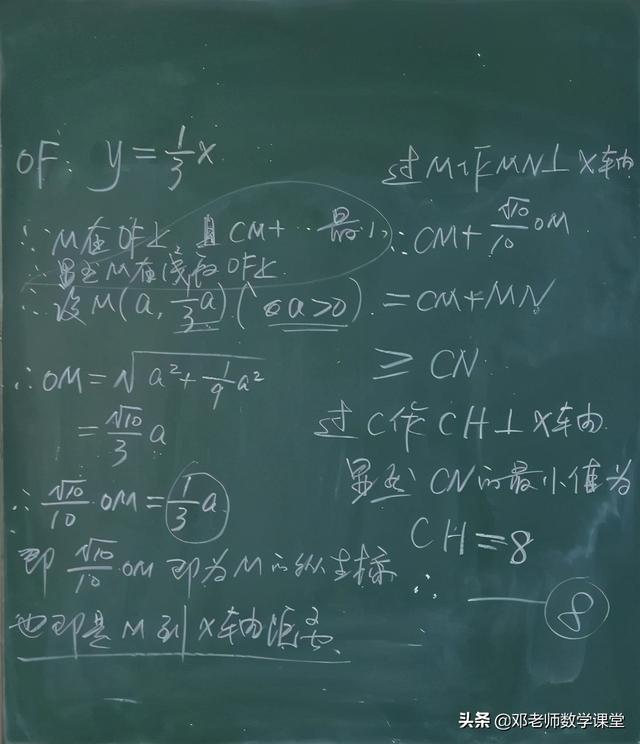 OF: y=1/3x
∵M在OF上,且CM+…最小
显然M在线段OF上
∴设M(a,1/3a)(a>0)
∴OM=√(a²+1/9a²)
=√10/3a
∴√10/10·OM=1/3a
即√10/10·OM即为M的纵坐标
也即是M到x轴距离
过M作MN⊥x轴
∴CM+√10/10OM
=CM+MN
≥CN
过C作CH⊥x轴
显然CN的最小值为
CH=8
∴——8
头条@邓老师数学课堂